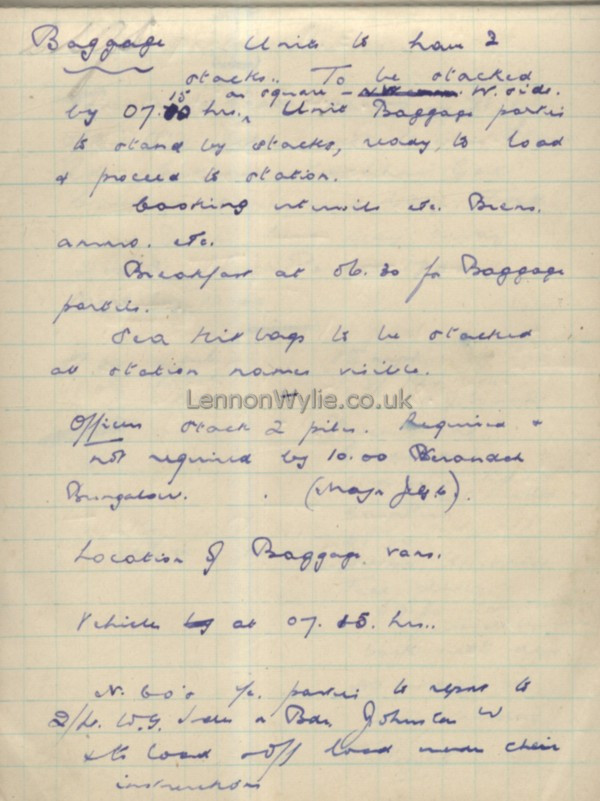 Baggage Units to have 2
stacks.. To be stacked
on square - W. side.
by 07.15 hrs. Unit Baggage parties
to stand by stacks, ready to load
& proceed to station.
Cooking utensils etc. Brens.
ammo. etc.
Breakfast at 06.30 for Baggage
parties.
Sea Kit bags to be stacked
at station names visible.
LennonWylie.co.uk
Officers stack 2 piles. Required &
not required by 10.00 Verandah
Bungalow. (Major
Location of Baggage vans.
Vehicles at 07.15. hrs..
N. Co's i/c. parties to report to
2/Lt. W.G. Bdr. Johnston W
& to load & off load under their
instructions